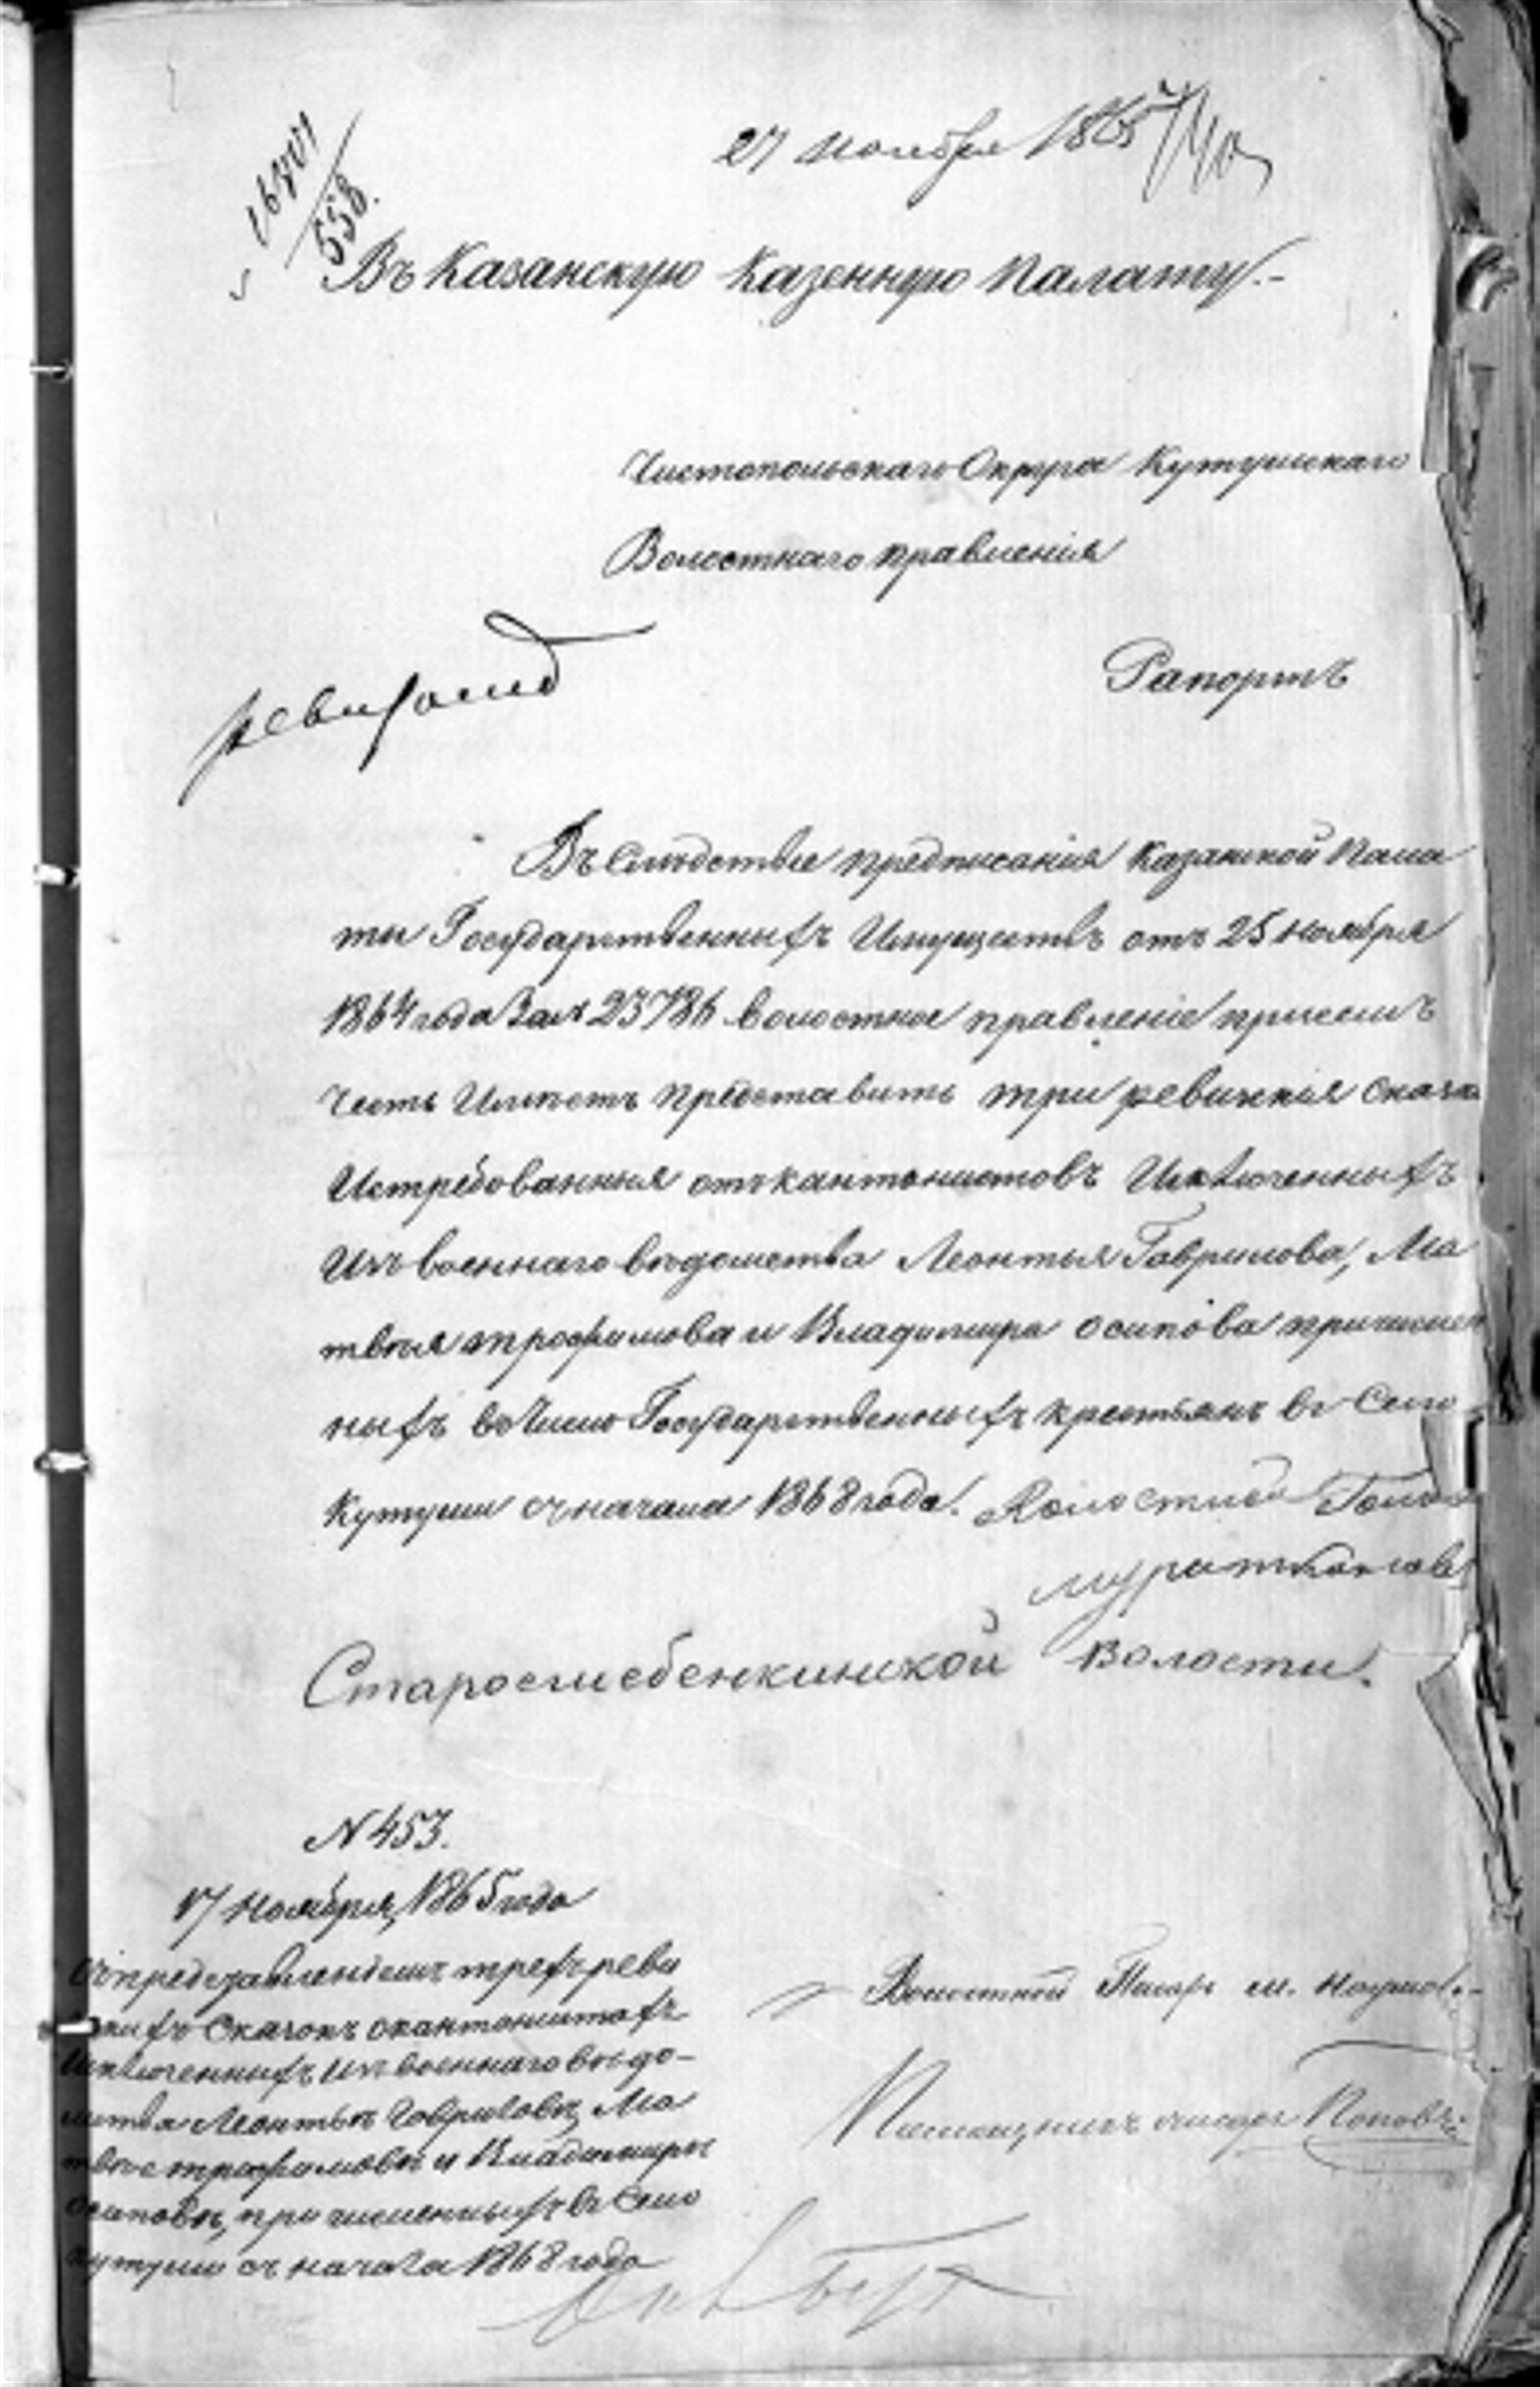 27 ноября 1865
16701
558.
Въ Казанскую Казенную Палату.-
Чистопольскаго Округа Кутушскаго
Волостнаго правленія
Рапортъ
Въ Слѣдствіе предписанія Казанской Пала
ты Государственныхъ Имуществъ отъ 25 ноября
1864 года За № 23786 волостное правленіе присемъ
Честь Имѣетъ представить три ревижскія Сказки
Истребованныя отъ кантонистовъ Исключенныхъ
Изъ военнаго вѣдомства Леонтья Гаврилова, Ма
твѣя трофимова и Владимира осипова причислен
ныхъ въ Число Государственныхъ крестьянъ въ Село
Кутуши съ начала 1868 года.
Старо волости.
N 453.
17 Ноября, 1865 года
Съ представленіемъ трехъ реви
скихъ Сказокъ окантонистахъ
Исключенныхъ Изъ военнаго вѣдо-
мства Леонтьѣ Гавриловѣ, Ма
твѣе трофимовѣ и Владимирѣ
осиповѣ, причисленныхъ въ Село
кутуши съ начала 1868 года
Волостной Писарь М.
Помощникъ писаря Поповъ